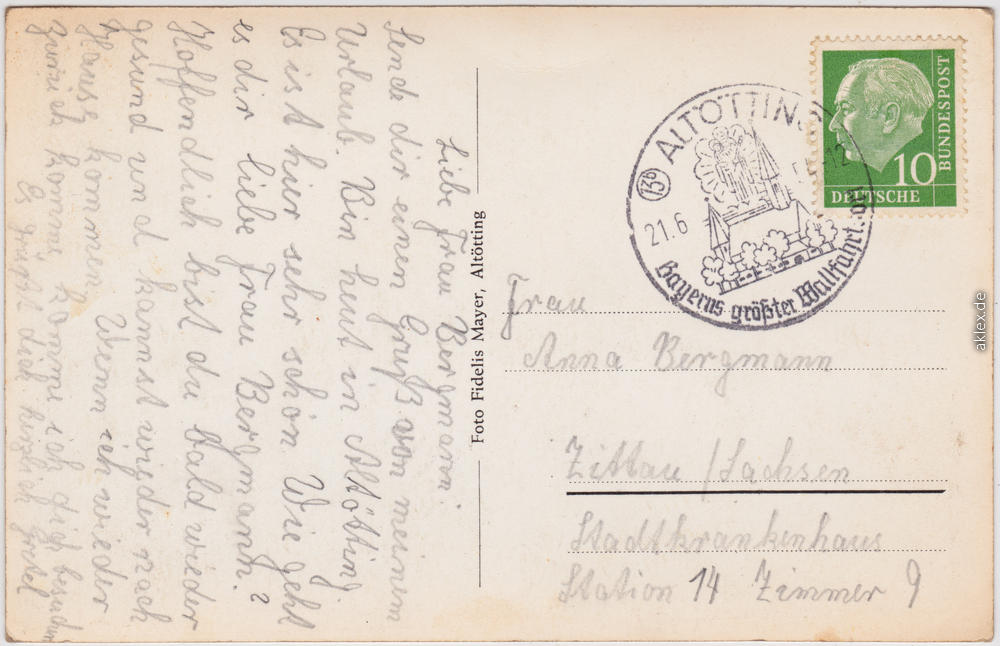 Liebe Frau Bergmann.
Sende dir einen Gruß von meinem
Urlaub. Bin heut in Altötting.
Es ist hier sehr schön. Wie geht
es dir liebe Frau Bergmann?
Hoffendlich bist du bald wieder
gesund und kannst wieder nach
Hause kommen. Wenn ich wieder
zurück komme, komme ich dich besuchen
Es grüßt dich herzlich Gretel
Foto Fidelis Mayer, Altötting
ALTÖTTING
13b
21.6
-12
Bayerns größter Wallfahrt
10
DEUTSCHE
BUNDESPOST
Frau
Anna Bergmann
Zittau / Sachsen
Stadtkrankenhaus
Station 14 Zimmer 9
aklex.de